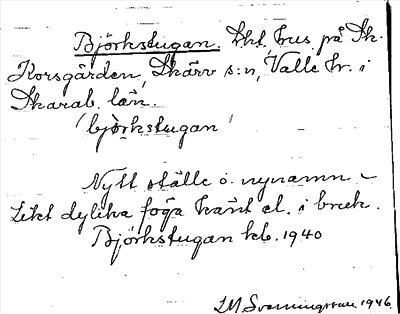 Björkstugan. Lht, hus på St.
Korsgården, Skärv s:n, Valle hr. i
Skarab. län.
'björkstugan'
Nytt ställe o. nynamn –
Likt dylika föga känt el. i bruk.
Björkstugan kb. 1940
LM Svenningsson 1946.